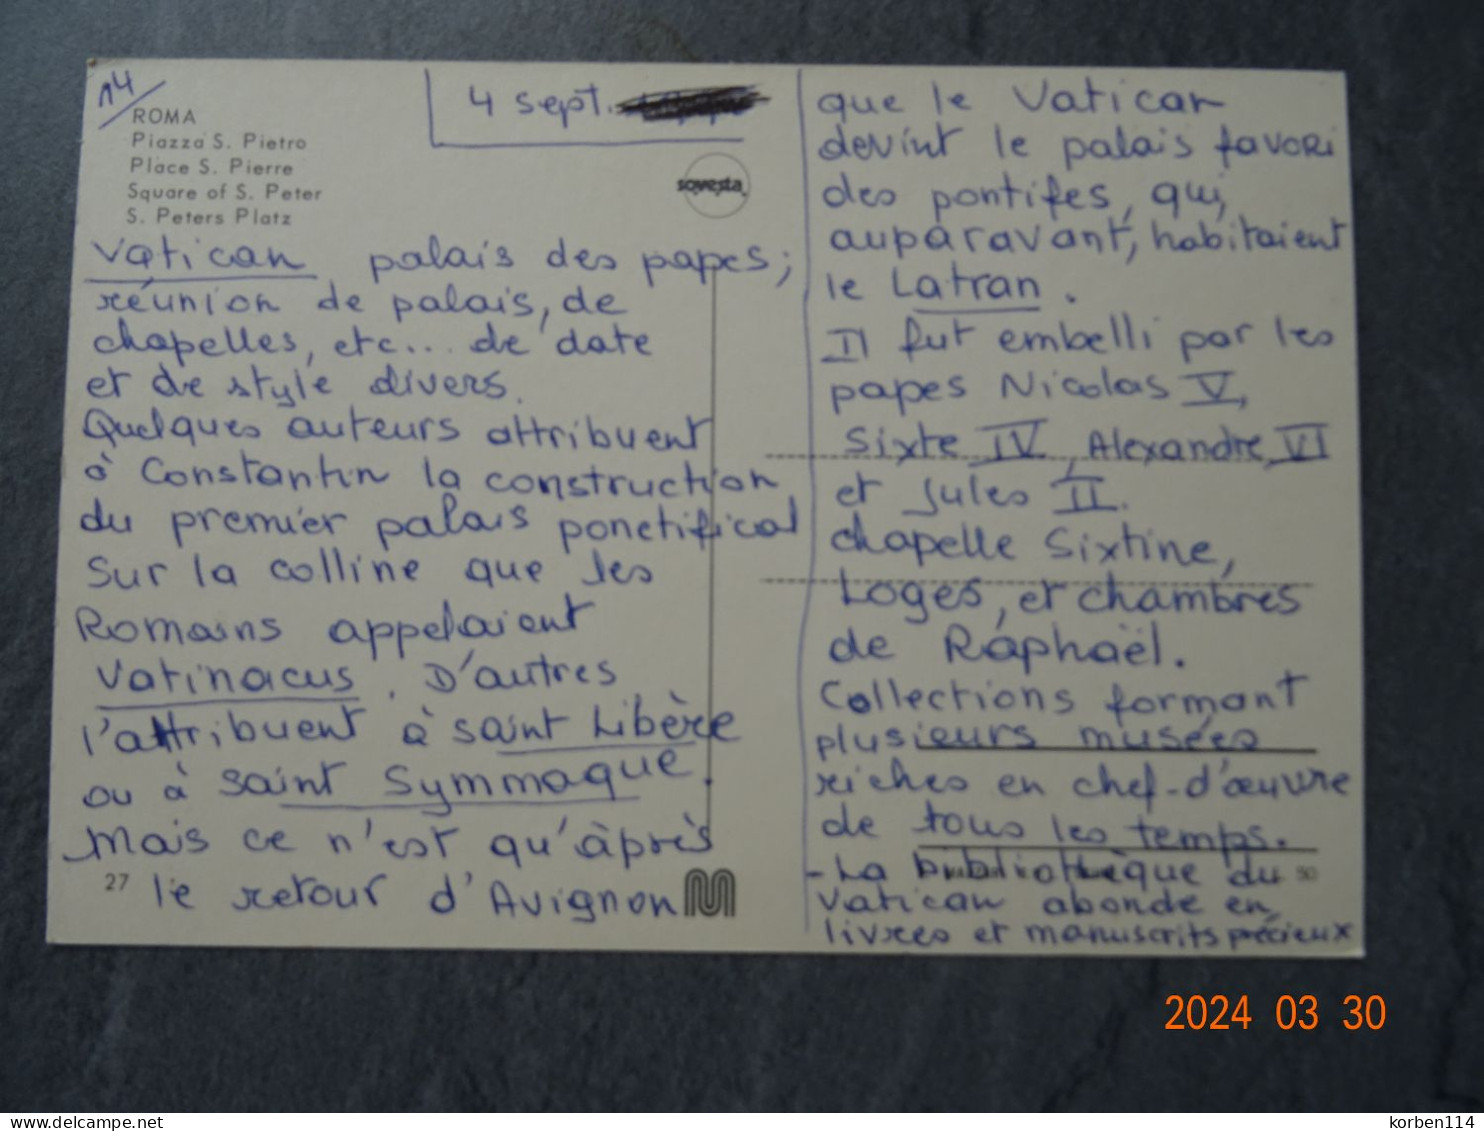 14
4 sept.
ROMA
Piazza S. Pietro
Place S. Pierre
Square of S. Peter
S. Peters Platz
sovesta
Vatican palais des papes;
réunion de palais, de
chapelles, etc... de date
et de style divers.
Quelques auteurs attribuent
à Constantin la construction
du premier palais ponctifical
sur la colline que les
Romains appelaient
Vatinacus. D'autres
l'attribuent à saint Libère
ou à saint Symmaque.
Mais ce n'est qu'àprès
le retour d'Avignon
27
que le Vatican
devint le palais favori
des pontifes, qui,
auparavant, habitaient
le Latran.
Il fut embelli par les
papes Nicolas V,
Sixte IV, Alexandre VI
et Jules II.
chapelle Sixtine,
Loges, et chambres
de Raphaël.
Collections formant
plusieurs musées
riches en chef-d'œuvre
de tous les temps.
- La bibliothèque du
50
Vatican abonde en
livres et manuscrits précieux
2024 03 30
delcampe.net
korben114